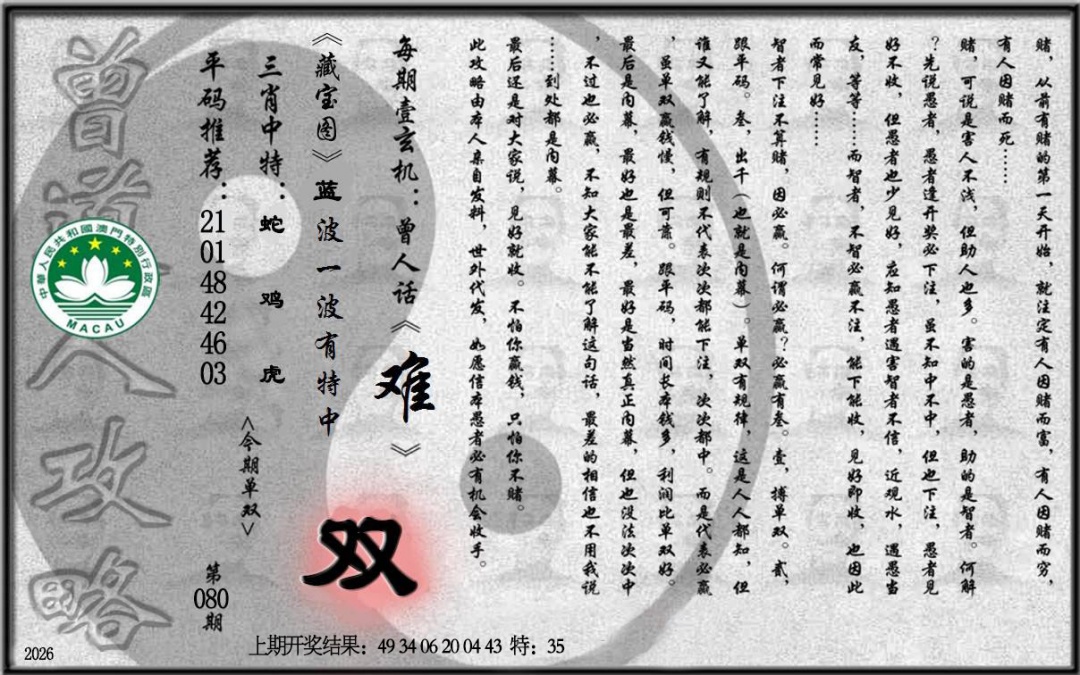 赌，从前有赌的第一天开始，就注定有人因赌而富，有人因赌而穷，
有人因赌而死……
赌，可说是害人不浅，但助人也多。害的是愚者，助的是智者。何解
？先说愚者，愚者逢开奖必下注，虽不知中不中，但也下注，愚者见
好不收，但愚者也少见好，应知愚者遇害智者不信，近观水，遇愚当
友，等等……而智者，不智必赢不注，能下能收，见好即收，也因此
而常见好……
智者下注不算赌，因必赢。何谓必赢？必赢有叁。壹，搏单双。贰，
跟平码。叁，出千（也就是内幕）。单双有规律，这是人人都知，但
谁又能了解，有规则不代表次次都能下注，次次都中。而是代表必赢
，虽单双赢钱慢，但可靠。跟平码，时间长本钱多，利润比单双好。
最后是内幕，最好也是最差，最好是当然真正内幕，但也没法次次中
，不过也必赢，不知大家能不能了解这句话，最差的相信也不用我说
……到处都是内幕。
最后还是对大家说，见好就收。不怕你赢钱，只怕你不赌。
此攻略由本人亲自发料，世外代发，如愿信本愚者必有机会收手。
每期壹玄机：曾人话《难》
《藏宝图》蓝波一波有特中
双
三肖中特：蛇鸡虎
<今期单双>
平码推荐：
21
01
48
42
46
03
第
080
期
曾道人攻略
中華人民共和國澳門特別行政區
MACAU
上期开奖结果：49 34 06 20 04 43 特：35
2026